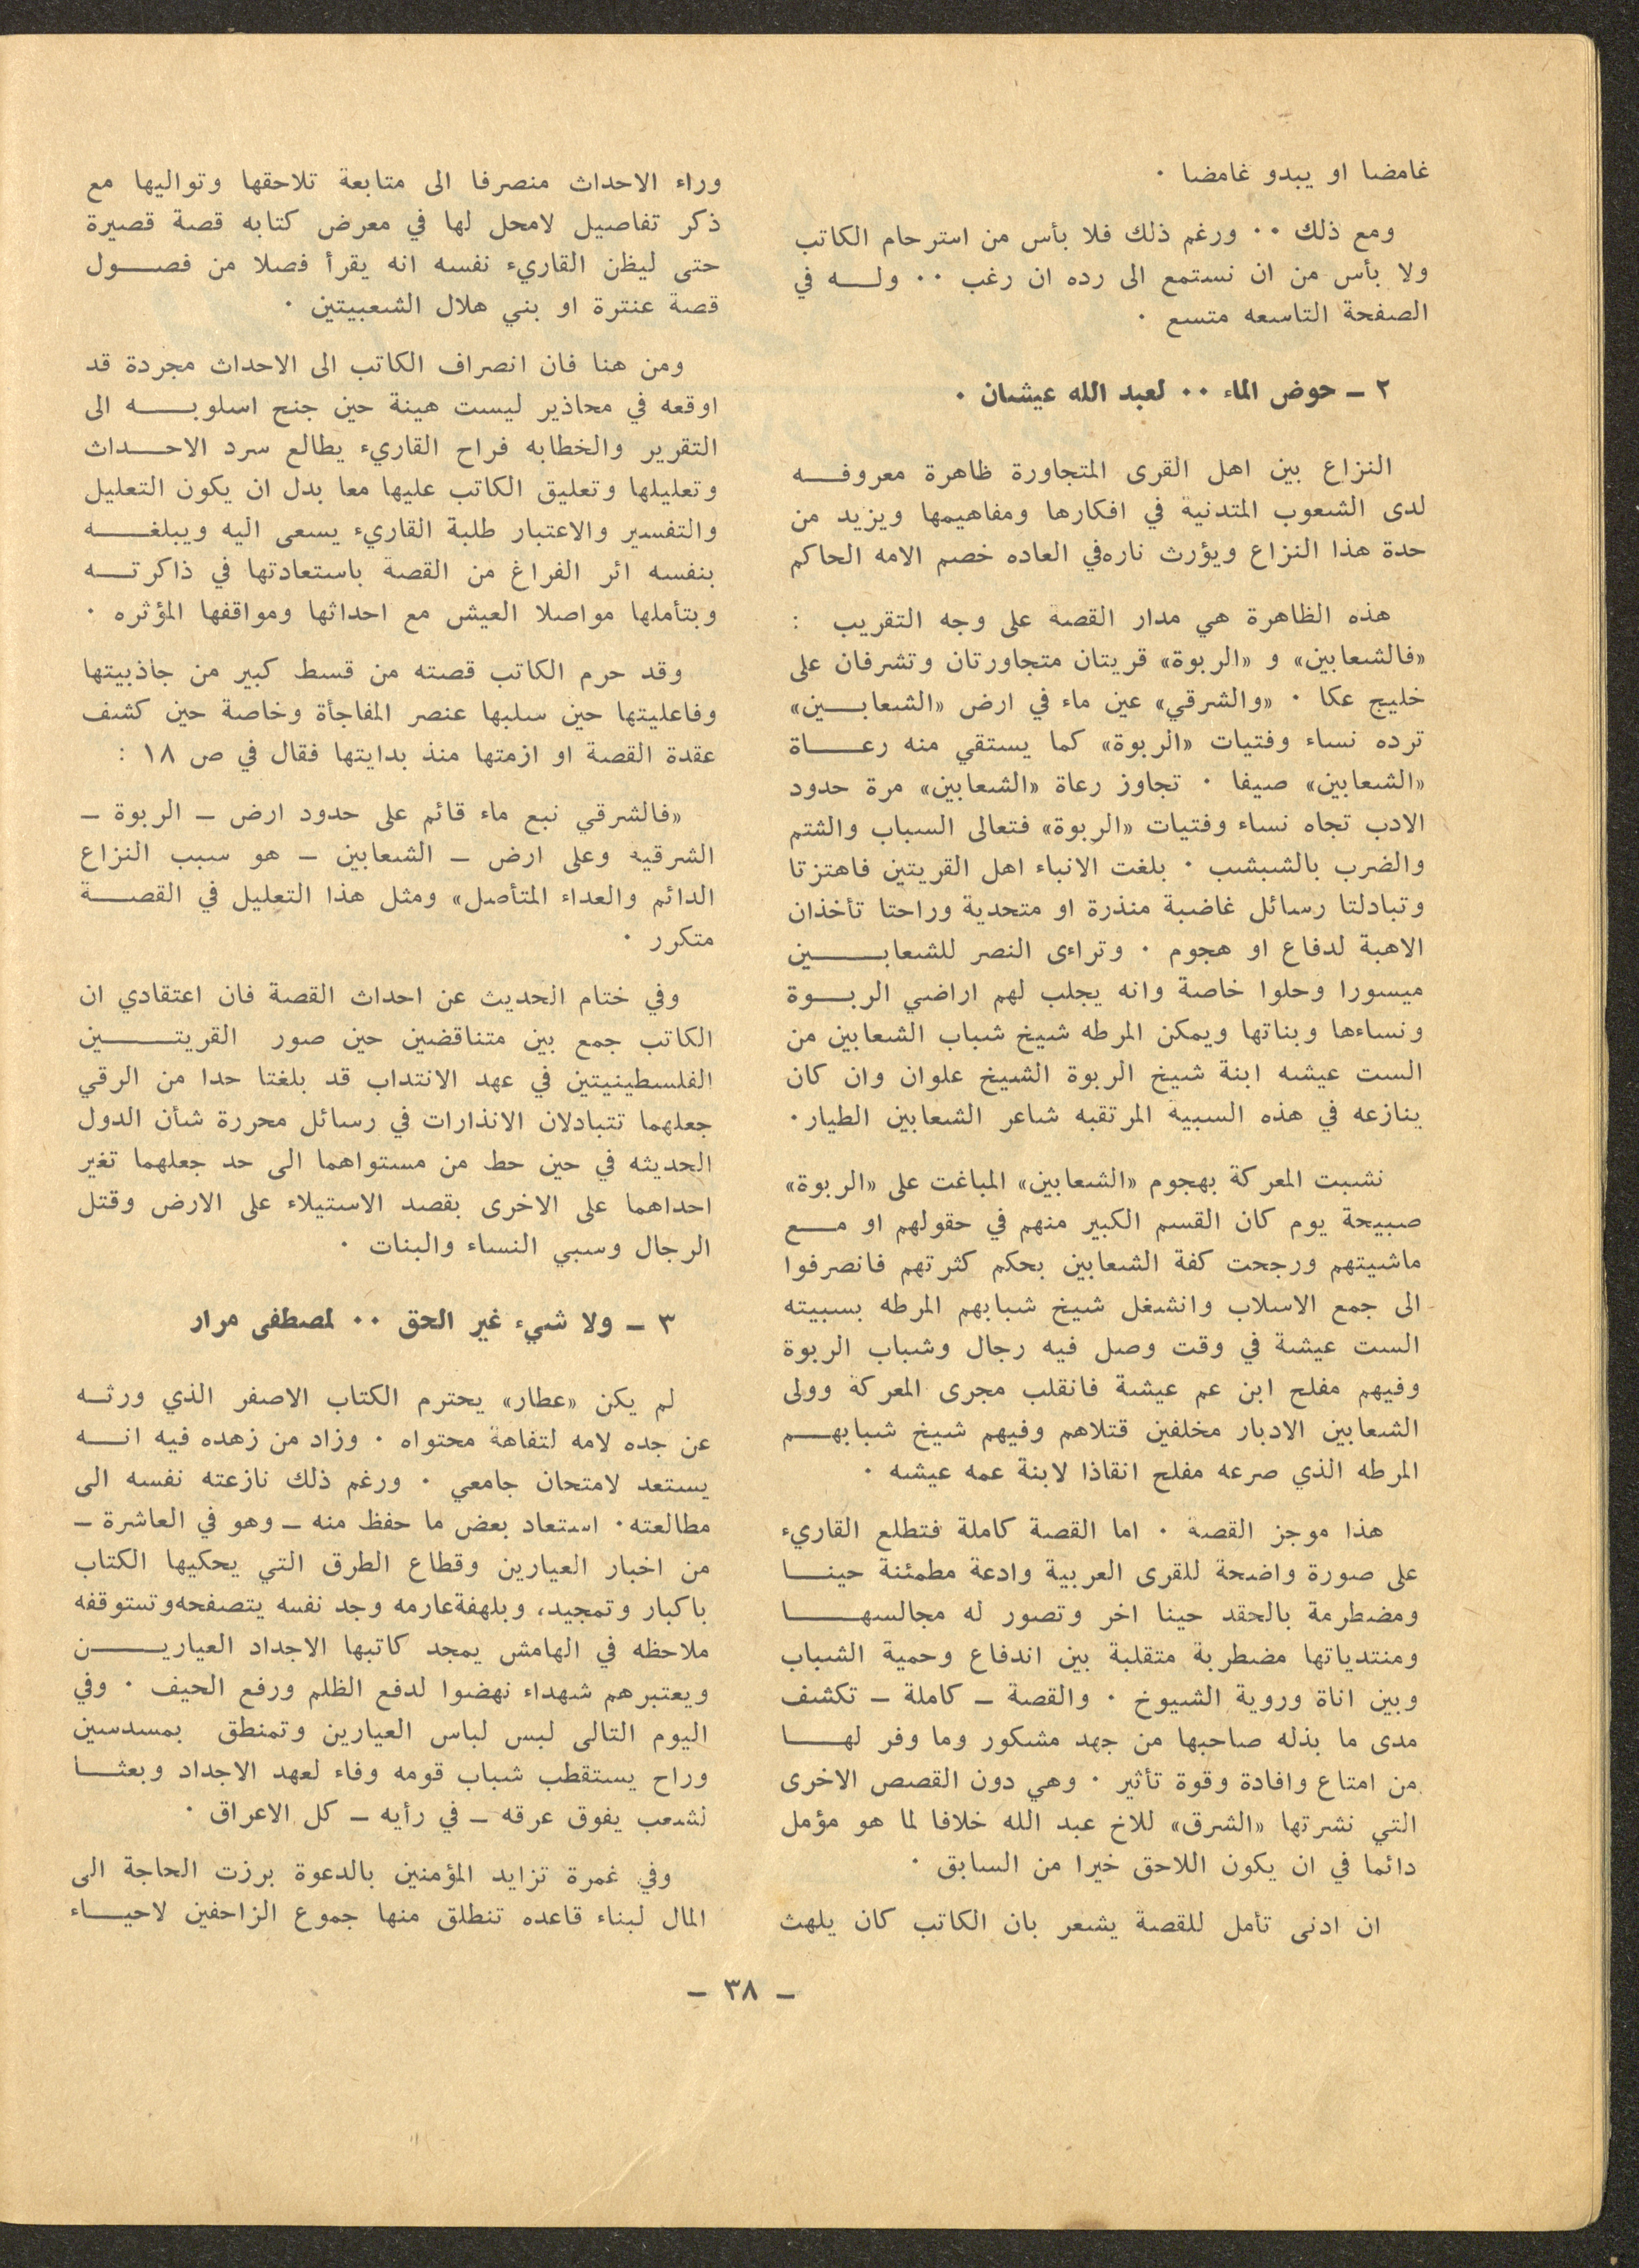 غامضا او يبدو غامضا ٠
ومع ذلك ٠٠ ورغم ذلك فلا بأس من استرحام الكاتب
ولا بأس من ان نستمع الى رده ان رغب ٠٠ وله في
الصفحة التاسعه متسع ٠
٢ ـ حوض الماء ٠٠ لعبد الله عيشان ٠
النزاع بين اهل القرى المتجاورة ظاهرة معروفه
لدى الشعوب المتدنية في افكارها ومفاهيمها ويزيد من
حدة هذا النزاع ويؤرث ناره في العاده خصم الامه الحاكم
هذه الظاهرة هي مدار القصة على وجه التقريب :
«فالشعابين» و «الربوة» قريتان متجاورتان وتشرفان على
خليج عكا ٠ «والشرقي» عين ماء في ارض «الشعابين»
ترده نساء وفتيات «الربوة» كما يستقي منه رعاة
«الشعابين» صيفا ٠ تجاوز رعاة «الشعابين» مرة حدود
الادب تجاه نساء وفتيات «الربوة» فتعالى السباب والشتم
والضرب بالشبشب ٠ بلغت الانباء اهل القريتين فاهتزتا
وتبادلتا رسائل غاضبة منذرة او متحدية وراحتا تأخذان
الاهبة لدفاع او هجوم ٠ وتراءى النصر للشعابين
ميسورا وحلوا خاصة وانه يجلب لهم اراضي الربوة
ونساءها وبناتها ويمكن المرطه شيخ شباب الشعابين من
الست عيشه ابنة شيخ الربوة الشيخ علوان وان كان
ينازعه في هذه السبية المرتقبه شاعر الشعابين الطيار ٠
نشبت المعركة بهجوم «الشعابين» المباغت على «الربوة»
صبيحة يوم كان القسم الكبير منهم في حقولهم او مع
ماشيتهم ورجحت كفة الشعابين بحكم كثرتهم فانصرفوا
الى جمع الاسلاب وانشغل شيخ شبابهم المرطه بسبيته
الست عيشة في وقت وصل فيه رجال وشباب الربوة
وفيهم مفلح ابن عم عيشة فانقلب مجرى المعركة وولى
الشعابين الادبار مخلفين قتلاهم وفيهم شيخ شبابهم
المرطه الذي صرعه مفلح انقاذا لابنة عمه عيشه ٠
هذا موجز القصة ٠ اما القصة كاملة فتطلع القاريء
على صورة واضحة للقرى العربية وادعة مطمئنة حينا
ومضطرمة بالحقد حينا اخر وتصور له مجالسها
ومنتدياتها مضطربة متقلبة بين اندفاع وحمية الشباب
وبين اناة وروية الشيوخ ٠ والقصة ـ كاملة ـ تكشف
مدى ما بذله صاحبها من جهد مشكور وما وفر لها
من امتاع وافادة وقوة تأثير ٠ وهي دون القصص الاخرى
التي نشرتها «الشرق» للاخ عبد الله خلافا لما هو مؤمل
دائما في ان يكون اللاحق خيرا من السابق ٠
ان ادنى تأمل للقصة يشعر بان الكاتب كان يلهث
وراء الاحداث منصرفا الى متابعة تلاحقها وتواليها مع
ذكر تفاصيل لامحل لها في معرض كتابه قصة قصيرة
حتى ليظن القاريء نفسه انه يقرأ فصلا من فصول
قصة عنترة او بني هلال الشعبيتين ٠
ومن هنا فان انصراف الكاتب الى الاحداث مجردة قد
اوقعه في محاذير ليست هينة حين جنح اسلوبه الى
التقرير والخطابه فراح القاريء يطالع سرد الاحداث
وتعليلها وتعليق الكاتب عليها معا بدل ان يكون التعليل
والتفسير والاعتبار طلبة القاريء يسعى اليه ويبلغه
بنفسه اثر الفراغ من القصة باستعادتها في ذاكرته
وبتأملها مواصلا العيش مع احداثها ومواقفها المؤثره ٠
وقد حرم الكاتب قصته من قسط كبير من جاذبيتها
وفاعليتها حين سلبها عنصر المفاجأة وخاصة حين كشف
عقدة القصة او ازمتها منذ بدايتها فقال في ص ١٨ :
«فالشرقي نبع ماء قائم على حدود ارض ـ الربوة ـ
الشرقية وعلى ارض ـ الشعابين ـ هو سبب النزاع
الدائم والعداء المتأصل» ومثل هذا التعليل في القصة
متكرر ٠
وفي ختام الحديث عن احداث القصة فان اعتقادي ان
الكاتب جمع بين متناقضين حين صور القريتين
الفلسطينيتين في عهد الانتداب قد بلغتا حدا من الرقي
جعلهما تتبادلان الانذارات في رسائل محررة شأن الدول
الحديثه في حين حط من مستواهما الى حد جعلهما تغير
احداهما على الاخرى بقصد الاستيلاء على الارض وقتل
الرجال وسبي النساء والبنات ٠
٣ ـ ولا شيء غير الحق ٠٠ لمصطفى مرار
لم يكن «عطار» يحترم الكتاب الاصفر الذي ورثه
عن جده لامه لتفاهة محتواه ٠ وزاد من زهده فيه انه
يستعد لامتحان جامعي ٠ ورغم ذلك نازعته نفسه الى
مطالعته ٠ استعاد بعض ما حفظ منه ـ وهو في العاشرة ـ
من اخبار العيارين وقطاع الطرق التي يحكيها الكتاب
باكبار وتمجيد، وبلهفة عارمه وجد نفسه يتصفحه وتستوقفه
ملاحظه في الهامش يمجد كاتبها الاجداد العيارين
ويعتبرهم شهداء نهضوا لدفع الظلم ورفع الحيف ٠ وفي
اليوم التالى لبس لباس العيارين وتمنطق بمسدسين
وراح يستقطب شباب قومه وفاء لعهد الاجداد وبعثا
لشعب يفوق عرقه ـ في رأيه ـ كل الاعراق ٠
وفي غمرة تزايد المؤمنين بالدعوة برزت الحاجة الى
المال لبناء قاعده تنطلق منها جموع الزاحفين لاحياء
ـ ٣٨ ـ